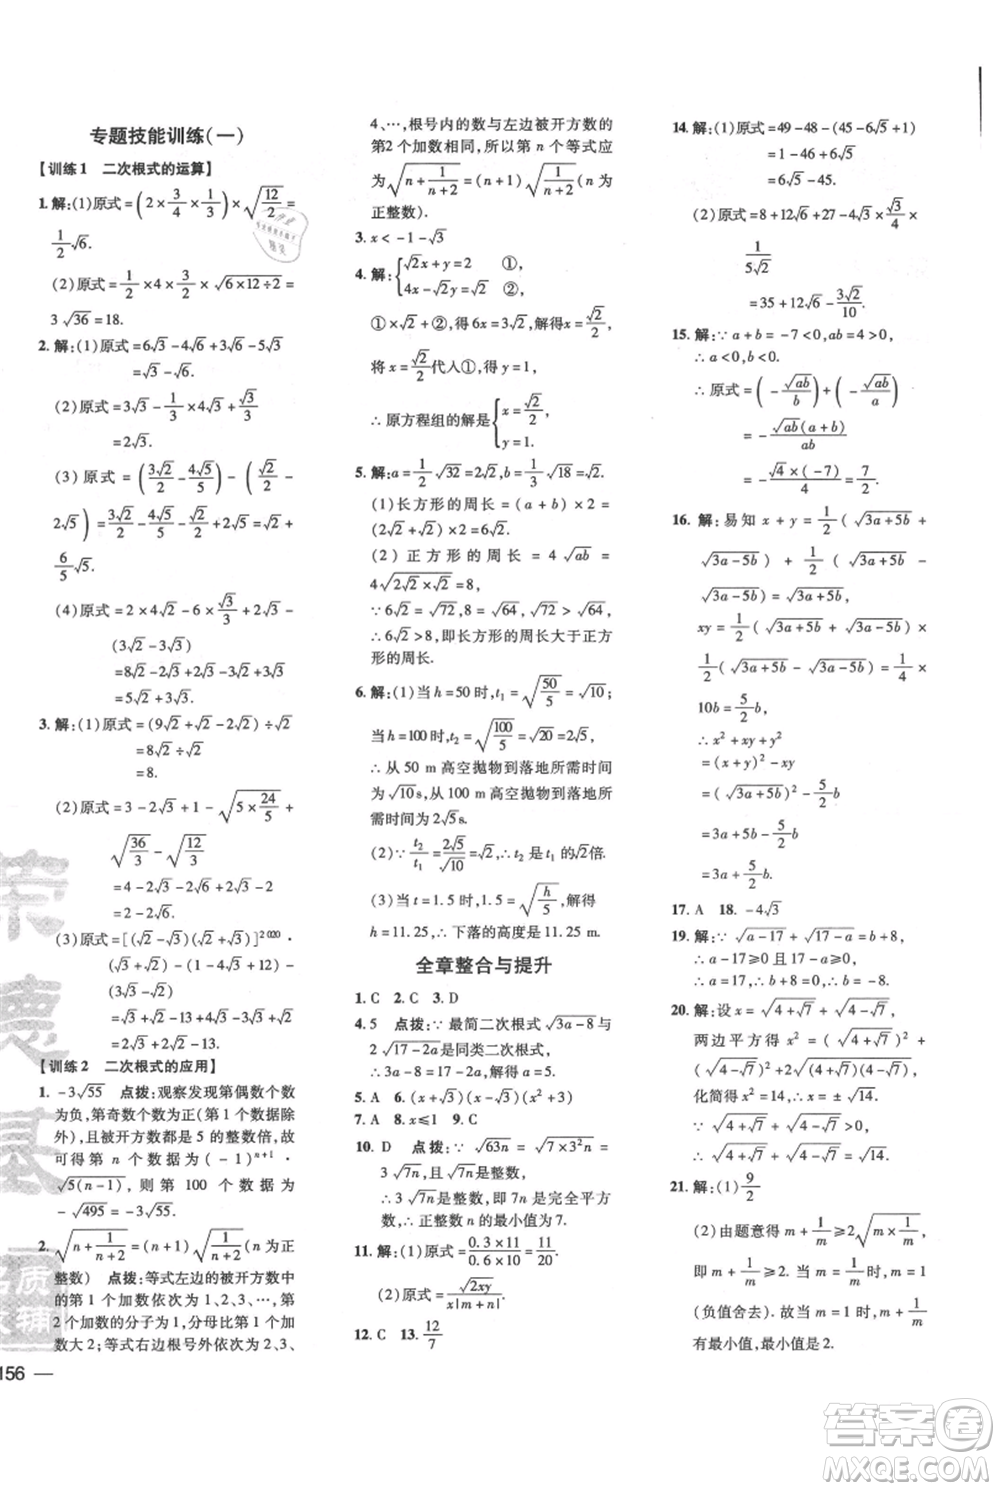 专题技能训练(一)
【训练1 二次根式的运算】
1. 解:(1)原式=(2×3/4×1/3)×√(12/2)=
1/2√6.
(2)原式=1/2×4×3/2×√(6×12÷2)=
3√36=18.
2. 解:(1)原式=6√3-4√6+3√6-5√3
=√3-√6.
(2)原式=3√3-1/3×4√3+√3/3
=2√3.
(3)原式=(3√2/2+4√5/5)-(√2/2-
2√5)=3√2/2+4√5/5-√2/2+2√5=√2+
6/5√5.
(4)原式=2×4√2-6×√3/3-
(3√2-3√3)
=8√2-2√3-3√2+3√3
=5√2+√3.
3. 解:(1)原式=(9√2+√2-2√2)÷√2
=8√2÷√2
=8.
(2)原式=3-2√3+1-√(5×24/5)+
√(36/3)-√(12/3)
=4-2√3-2√6+2√3-2
=2-2√6.
(3)原式=[(√3-√2)(√3+√2)]²⁰²⁰·
(√3-√2)-√3-√2
=√3-√2-√3-√2
【训练2 二次根式的应用】
1. -3√55 点拨:观察发现第偶数个数
为负,第奇数个数为正(第1个数据除
外),且被开方数是5的整数倍,故
可得第n个数据为(-1)ⁿ⁺¹·
√(5(n-1)),则第100个数据为
-√495=-3√55.
2. √(n+1/(n+2))=(n+1)√(1/(n+2))(n为正
整数) 点拨:等式左边的被开方数中
的第1个加数依次为1、2、3、…,第
2个加数的分子为1,分母比第1个加
数大2;等式右边根号外依次为2、3、
156
4、…,根号内的数与左边被开方数的
第2个加数相同,所以第n个等式应
为√(n+1/(n+2))=(n+1)√(1/(n+2))(n为
正整数).
3. x<-1-√3
4. 解:{√2x+y=2 ①,
4x-√2y=√2 ②,
①×√2+②,得6x=3√2,解得x=√2/2,
将x=√2/2代入①,得y=1,
∴原方程组的解是{x=√2/2,
y=1.
5. 解:a=1/2√32=2√2,b=1/3√18=√2.
(1)长方形的周长=(a+b)×2=
(2√2+√2)×2=6√2.
(2)正方形的周长=4√ab=
4√(2√2×√2)=8,
∵6√2=√72,8=√64,√72>√64,
∴6√2>8,即长方形的周长大于正方
形的周长.
6. 解:(1)当h=50时,t₁=√(50/5)=√10;
当h=100时,t₂=√(100/5)=√20=2√5.
∴从50 m高空抛物到落地所需时间
为√10s,从100 m高空抛物到落地所
需时间为2√5s.
(2)∵t₂/t₁=2√5/√10=√2,∴t₂是t₁的√2倍.
(3)当t=1.5时,1.5=√(h/5),解得
h=11.25,∴下落的高度是11.25 m.
全章整合与提升
1. C 2. C 3. D
4. 5 点拨:∵最简二次根式√(3a-8)与
2√(17-2a)是同类二次根式,
∴3a-8=17-2a,解得a=5.
5. A 6. (x+√3)(x-√3)(x²+3)
7. A 8. x≤1 9. C
10. D 点拨:∵√63n=√(7×3²n)=
3√7n,且√7n是整数,
∴3√7n是整数,即7n是完全平方
数,∴正整数n的最小值为7.
11. 解:(1)原式=(0.3×11)/(0.6×10)=11/20.
(2)原式=√2xy/(x|m+n|).
12. C 13. 12/7
14. 解:(1)原式=49-48-(45-6√5+1)
=1-46+6√5
=6√5-45.
(2)原式=8+12√6+27-4√3×√3/4×
1/(5√2)
=35+12√6-3√2/10.
15. 解:∵a+b=-7<0,ab=4>0,
∴a<0,b<0.
∴原式=(-√ab/b)+(-√ab/a)
=-√ab(a+b)/ab
=-√4×(-7)/4=7/2.
16. 解:易知x+y=1/2(√(3a+5b)+
√(3a-5b))+1/2(√(3a+5b)-
√(3a-5b))=√(3a+5b),
xy=1/2(√(3a+5b)+√(3a-5b))×
1/2(√(3a+5b)-√(3a-5b))=1/4×
10b=5/2b,
∴x²+xy+y²
=(x+y)²-xy
=(√(3a+5b))²-5/2b
=3a+5b-5/2b
=3a+5/2b.
17. A 18. -4√3
19. 解:∵√(a-17)+√(17-a)=b+8,
∴a-17≥0且17-a≥0.
∴a=17,∴b+8=0,∴b=-8.
20. 解:设x=√(4+√7)+√(4-√7),
两边平方得x²=(√(4+√7))²+
(√(4-√7))²+2√((4+√7)(4-√7)),
化简得x²=14,∴x=±√14.
∵√(4+√7)+√(4-√7)>0,
∴√(4+√7)+√(4-√7)=√14.
21. 解:(1)9/2
(2)由题意得m+1/m≥2√(m×1/m)=2,
即当m=1/m时,m²=1,解得m=1
(负值舍去).即当m=1时,m+1/m
有最小值,最小值是2.
答案卷
MXQE.COM